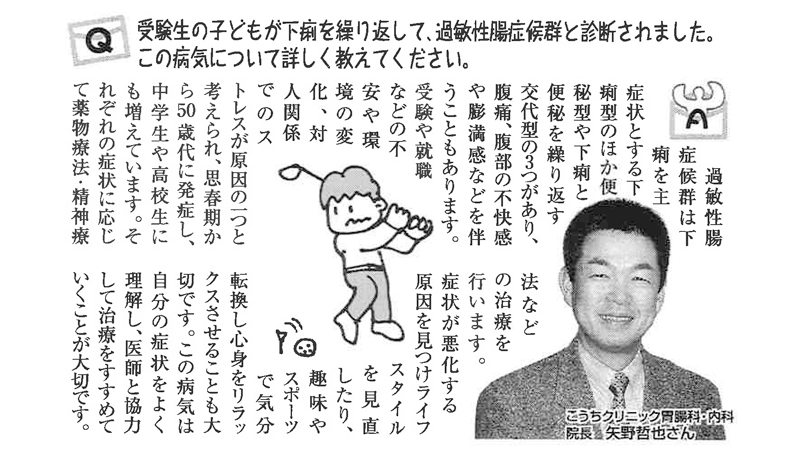 Q
受験生の子どもが下痢を繰り返して、過敏性腸症候群と診断されました。
この病気について詳しく教えてください。
A
過敏性腸
症候群は下
痢を主
症状とする下
痢型のほか便
秘型や下痢と
便秘を繰り返す
交代型の3つがあり、
腹痛、腹部の不快感
や膨満感などを伴
うこともあります。
受験や就職
などの不
安や環
境の変
化、対
人関係
でのス
トレスが原因の一つと
考えられ、思春期か
ら50歳代に発症し、
中学生や高校生に
も増えています。そ
れぞれの症状に応じ
て薬物療法・精神療
法など
の治療を
行います。
症状が悪化する
原因を見つけライフ
スタイル
を見直
したり、
趣味や
スポーツ
で気分
転換し心身をリラッ
クスさせることも大
切です。この病気は
自分の症状をよく
理解し、医師と協力
して治療をすすめて
いくことが大切です。
こうちクリニック胃腸科・内科
院長 矢野哲也さん